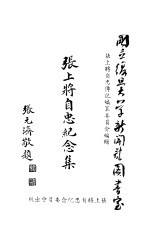 國立復旦大學新聞館圖書室
張上將自忠傳記編纂委員會編輯
張上將自忠紀念集
張元濟敬題
張上將自忠紀念委員會出版